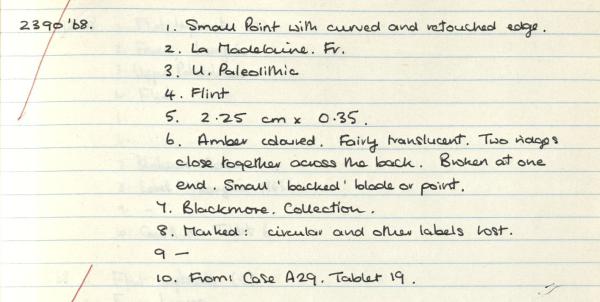 2390'68. 1. Small Point with curved and retouched edge.
2. La Madelaine. Fr.
3. U. Paleolithic
4. Flint
5. 2.25 cm x 0.35.
6. Amber coloured. Fairly translucent. Two ridges
close together across the back. Broken at one
end. Small 'backed' blade or point.
7. Blackmore. Collection.
8. Marked: circular and other labels lost.
9 —
10. From: Case A29. Tablet 19.